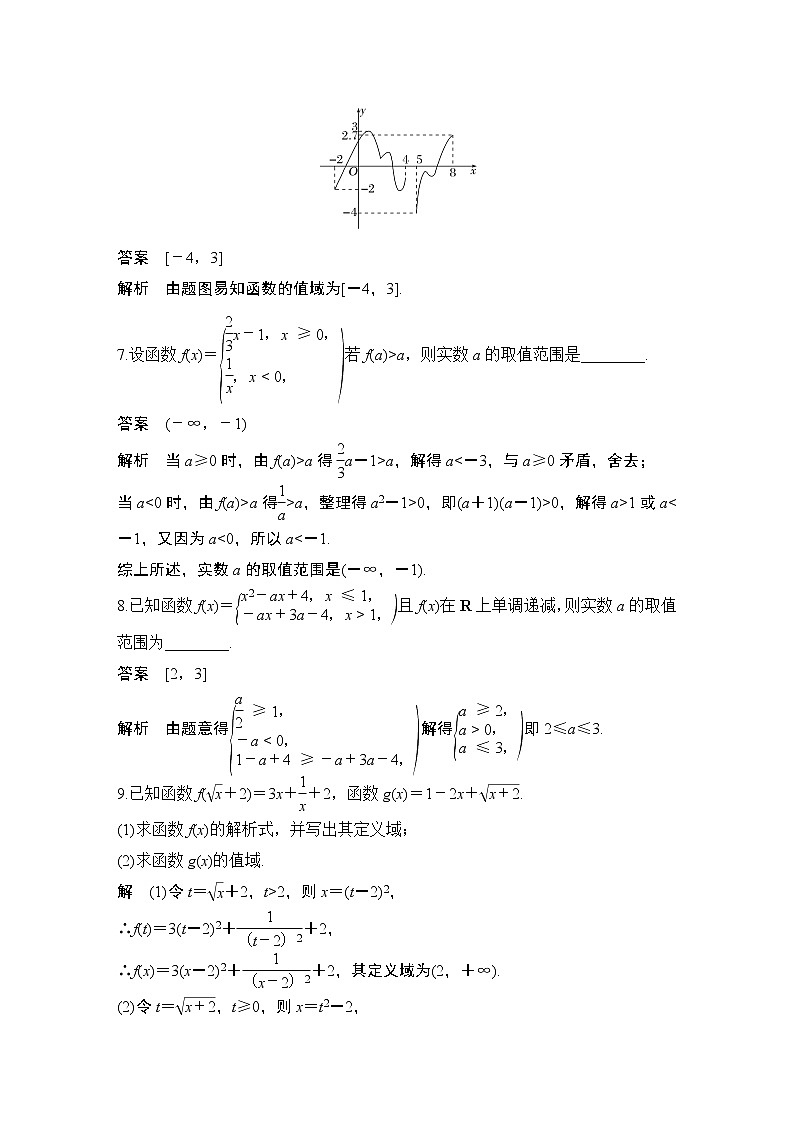 y
3
2.7
-2 O 4 5 8 x
-2
-4
答案 [-4,3]
解析 由题图易知函数的值域为[-4,3].
7.设函数 f(x)={2/3x-1,x ≥0, 1/x,x<0, 若 f(a)>a,则实数 a 的取值范围是________.
答案 (-∞,-1)
解析 当 a≥0 时,由 f(a)>a 得2/3a-1>a,解得 a<-3,与 a≥0 矛盾,舍去;
当 a<0 时,由 f(a)>a 得1/a>a,整理得 a²-1>0,即(a+1)(a-1)>0,解得 a>1 或 a<
-1,又因为 a<0,所以 a<-1.
综上所述,实数 a 的取值范围是(-∞,-1).
8.已知函数 f(x)={x²-ax+4,x ≤1, -ax+3a-4,x>1, 且 f(x)在 R 上单调递减,则实数 a 的取值
范围为________.
答案 [2,3]
解析 由题意得{a/2 ≥1, -a<0, 1-a+4 ≥-a+3a-4, 解得{a ≥2, a>0, a ≤3, 即 2≤a≤3.
9.已知函数 f(√x+2)=3x+1/x+2,函数 g(x)=1-2x+√(x+2).
(1)求函数 f(x)的解析式,并写出其定义域;
(2)求函数 g(x)的值域.
解 (1)令 t=√x+2,t>2,则 x=(t-2)²,
∴f(t)=3(t-2)²+1/(t-2)²+2,
∴f(x)=3(x-2)²+1/(x-2)²+2,其定义域为(2,+∞).
(2)令 t=√(x+2),t≥0,则 x=t²-2,